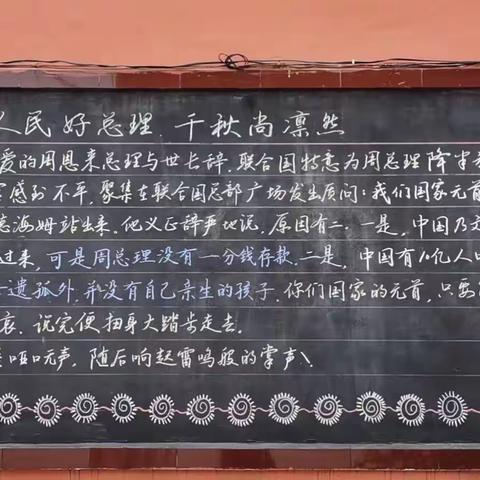 人民好总理 千秋尚凛然
爱的周恩来总理与世长辞，联合国特意为周总理降半
感到不平，聚集在联合国总部广场发出质问：我们国家元首
海姆站出来，他义正辞严地说，原因有二：一是，中国乃文
过来，可是周总理没有一分钱存款．二是，中国有10亿人口
遗孤外，并没有自己亲生的孩子．你们国家的元首，只要
哀．说完便扭身大踏步走去．
哑口无声，随后响起雷鸣般的掌声！